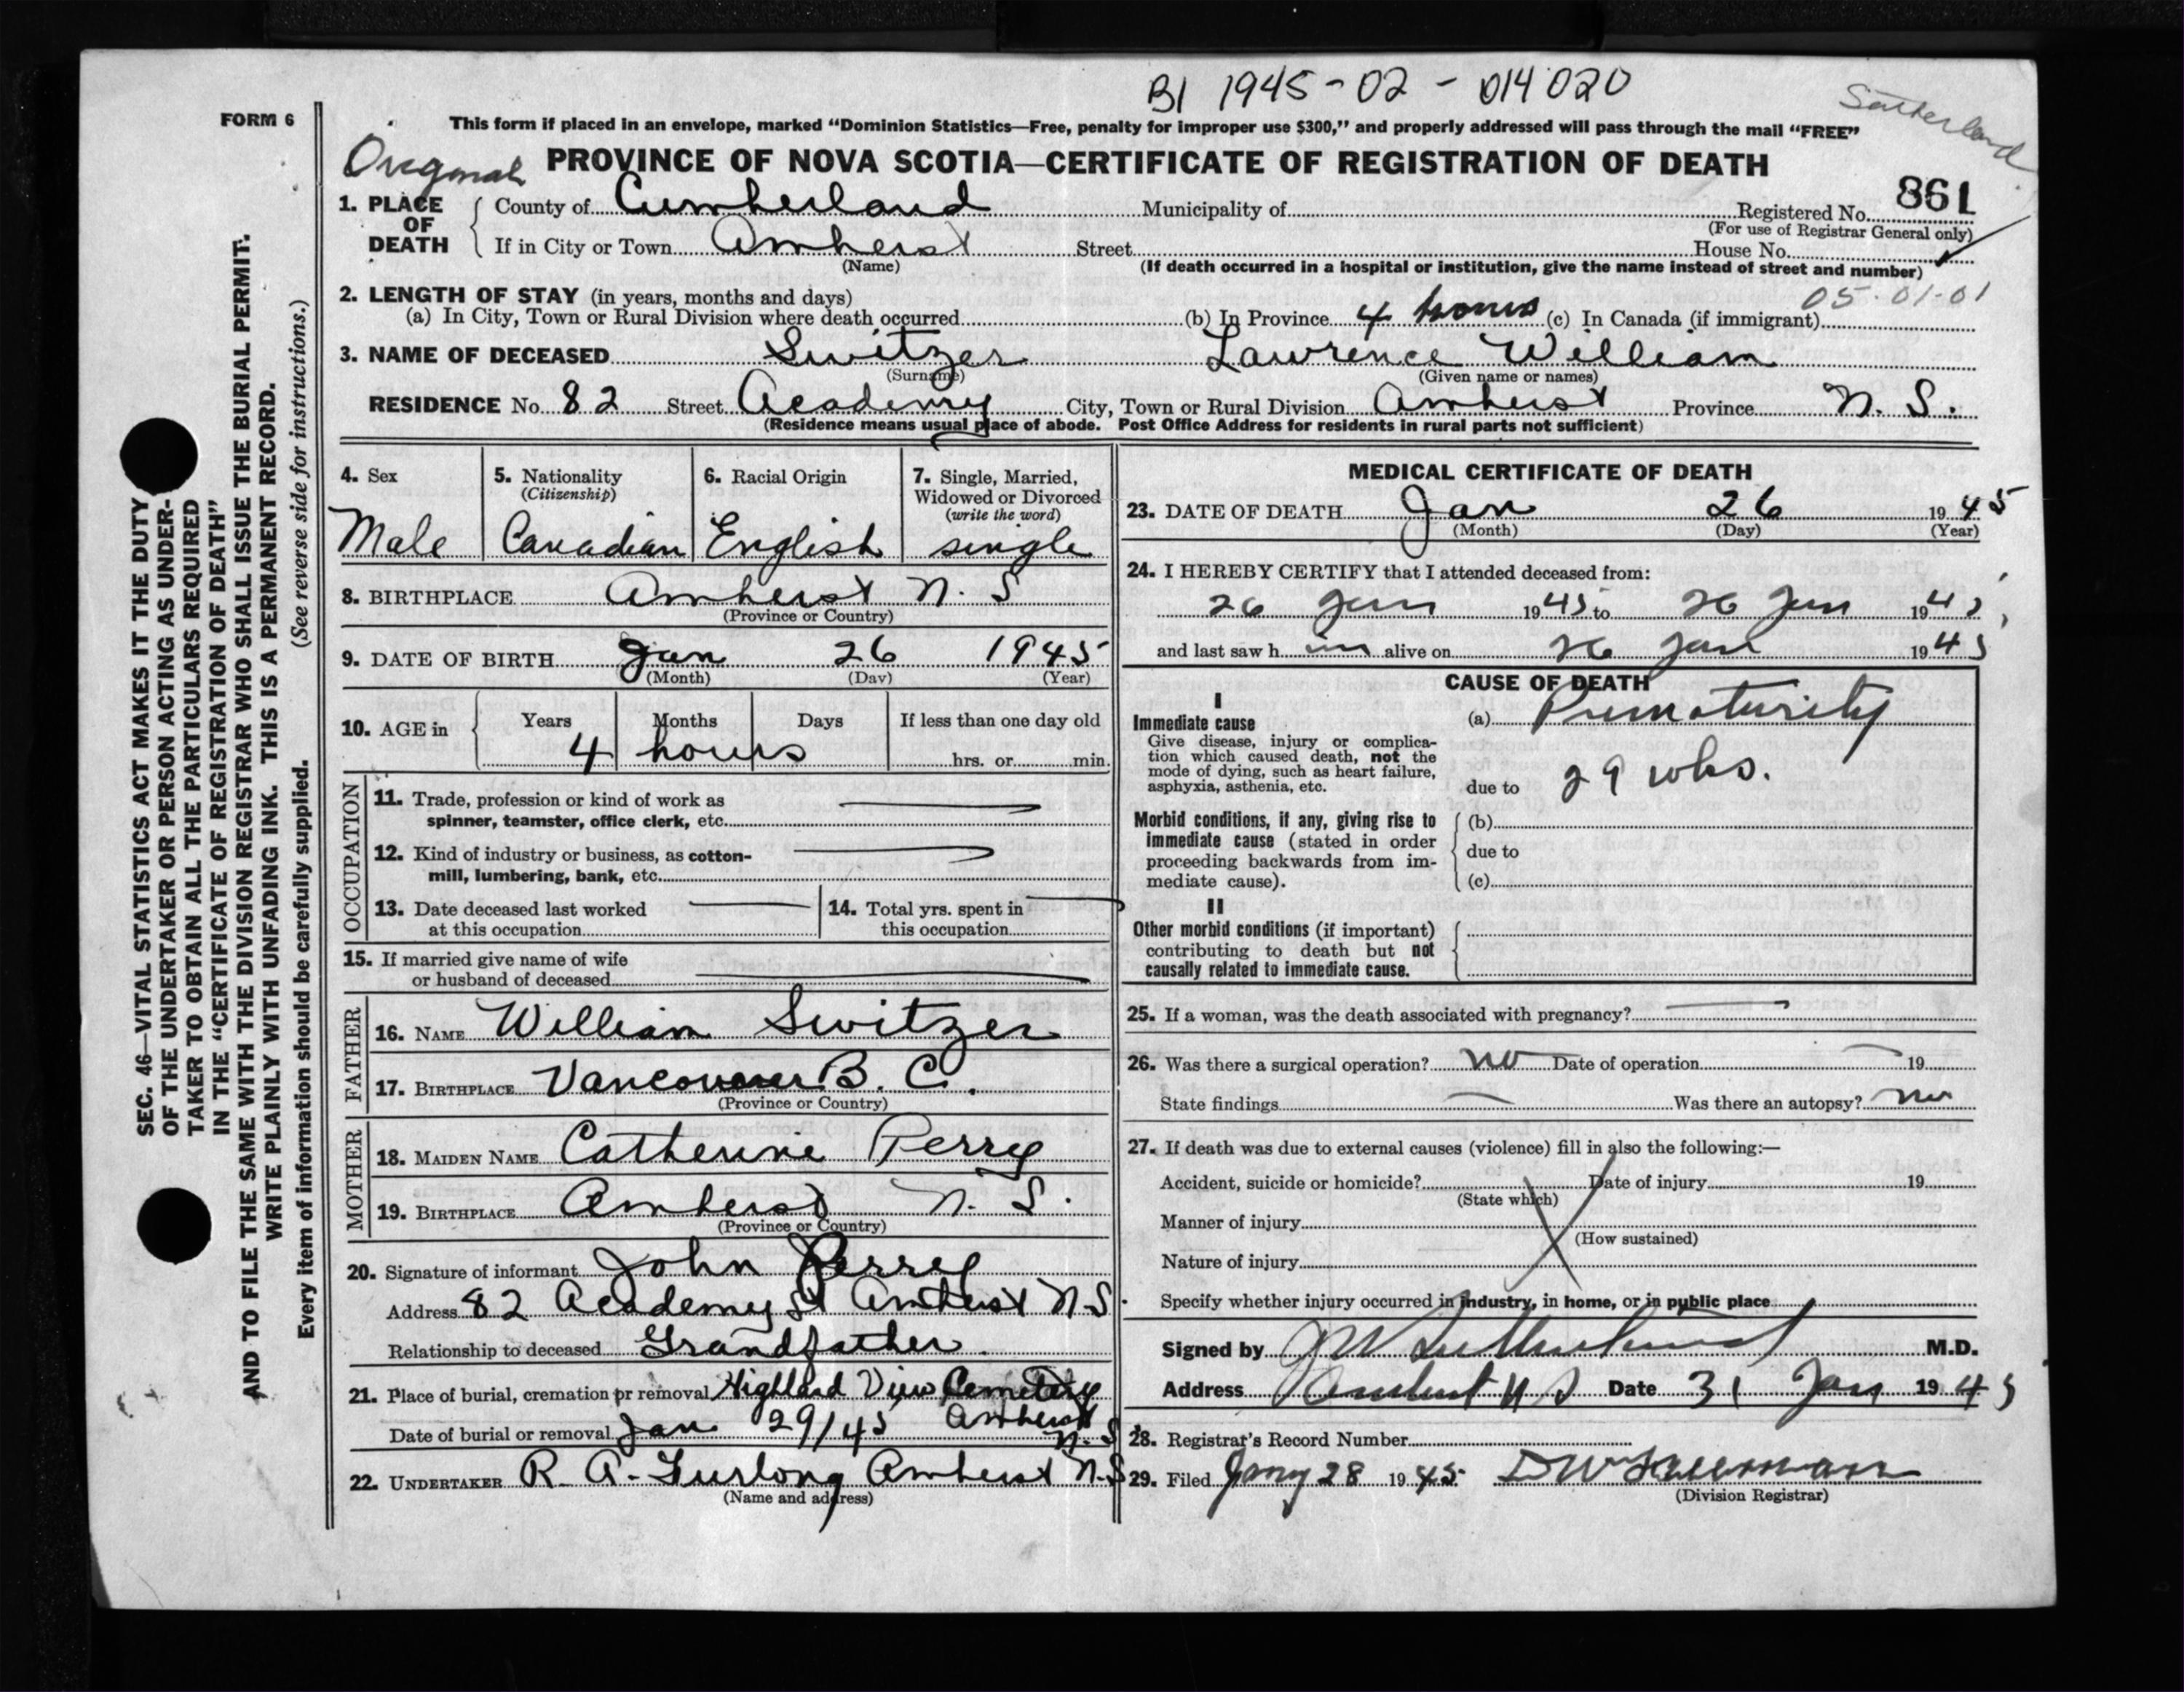 B1 1945-02-014020
Sutherland
FORM 6
This form if placed in an envelope, marked "Dominion Statistics—Free, penalty for improper use $300," and properly addressed will pass through the mail "FREE"
Original PROVINCE OF NOVA SCOTIA—CERTIFICATE OF REGISTRATION OF DEATH
861
1. PLACE OF DEATH County of Cumberland Municipality of Registered No.
(For use of Registrar General only)
If in City or Town Amherst Street House No.
(Name) (If death occurred in a hospital or institution, give the name instead of street and number)
2. LENGTH OF STAY (in years, months and days) 05-01-01
(a) In City, Town or Rural Division where death occurred (b) In Province 4 hours (c) In Canada (if immigrant)
3. NAME OF DECEASED Switzer Lawrence William
(Surname) (Given name or names)
RESIDENCE No. 82 Street Academy City, Town or Rural Division Amherst Province N. S.
(Residence means usual place of abode. Post Office Address for residents in rural parts not sufficient)
4. Sex 5. Nationality 6. Racial Origin 7. Single, Married,
(Citizenship) Widowed or Divorced
(write the word)
Male Canadian English single
8. BIRTHPLACE Amherst N. S
(Province or Country)
9. DATE OF BIRTH Jan 26 1945
(Month) (Day) (Year)
10. AGE in Years Months Days If less than one day old
4 hours
hrs. or min.
OCCUPATION
11. Trade, profession or kind of work as
spinner, teamster, office clerk, etc.
12. Kind of industry or business, as cotton-
mill, lumbering, bank, etc.
13. Date deceased last worked 14. Total yrs. spent in
at this occupation this occupation
15. If married give name of wife
or husband of deceased
FATHER
16. NAME William Switzer
17. BIRTHPLACE Vancouver B. C.
(Province or Country)
MOTHER
18. MAIDEN NAME Catherine Perry
19. BIRTHPLACE Amherst N. S.
(Province or Country)
20. Signature of informant John Perry
Address 82 Academy St Amherst N S.
Relationship to deceased Grandfather.
21. Place of burial, cremation or removal Highland View Cemetery
Amherst
Date of burial or removal Jan 29/45 N. S
22. UNDERTAKER R. A. Furlong Amherst N.S
(Name and address)
MEDICAL CERTIFICATE OF DEATH
23. DATE OF DEATH Jan 26 1945
(Month) (Day) (Year)
24. I HEREBY CERTIFY that I attended deceased from:
26 Jan 1945 to 26 Jan 1945
and last saw h im alive on 26 Jan 1945
CAUSE OF DEATH
I
Immediate cause (a) Prematurity
Give disease, injury or complica-
tion which caused death, not the
mode of dying, such as heart failure,
asphyxia, asthenia, etc. due to 29 wks.
Morbid conditions, if any, giving rise to (b)
immediate cause (stated in order due to
proceeding backwards from im-
mediate cause). (c)
II
Other morbid conditions (if important)
contributing to death but not
causally related to immediate cause.
25. If a woman, was the death associated with pregnancy?
26. Was there a surgical operation? no Date of operation 19
State findings Was there an autopsy? no
27. If death was due to external causes (violence) fill in also the following:—
Accident, suicide or homicide? Date of injury 19
(State which)
Manner of injury
(How sustained)
Nature of injury
Specify whether injury occurred in industry, in home, or in public place
Signed by Sutherland M.D.
Address Amherst N S Date 31 Jan 1945
28. Registrar's Record Number
29. Filed Jany 28 1945
(Division Registrar)
SEC. 46—VITAL STATISTICS ACT MAKES IT THE DUTY
OF THE UNDERTAKER OR PERSON ACTING AS UNDER-
TAKER TO OBTAIN ALL THE PARTICULARS REQUIRED
IN THE "CERTIFICATE OF REGISTRATION OF DEATH"
AND TO FILE THE SAME WITH THE DIVISION REGISTRAR WHO SHALL ISSUE THE BURIAL PERMIT.
WRITE PLAINLY WITH UNFADING INK. THIS IS A PERMANENT RECORD.
Every item of information should be carefully supplied. (See reverse side for instructions.)